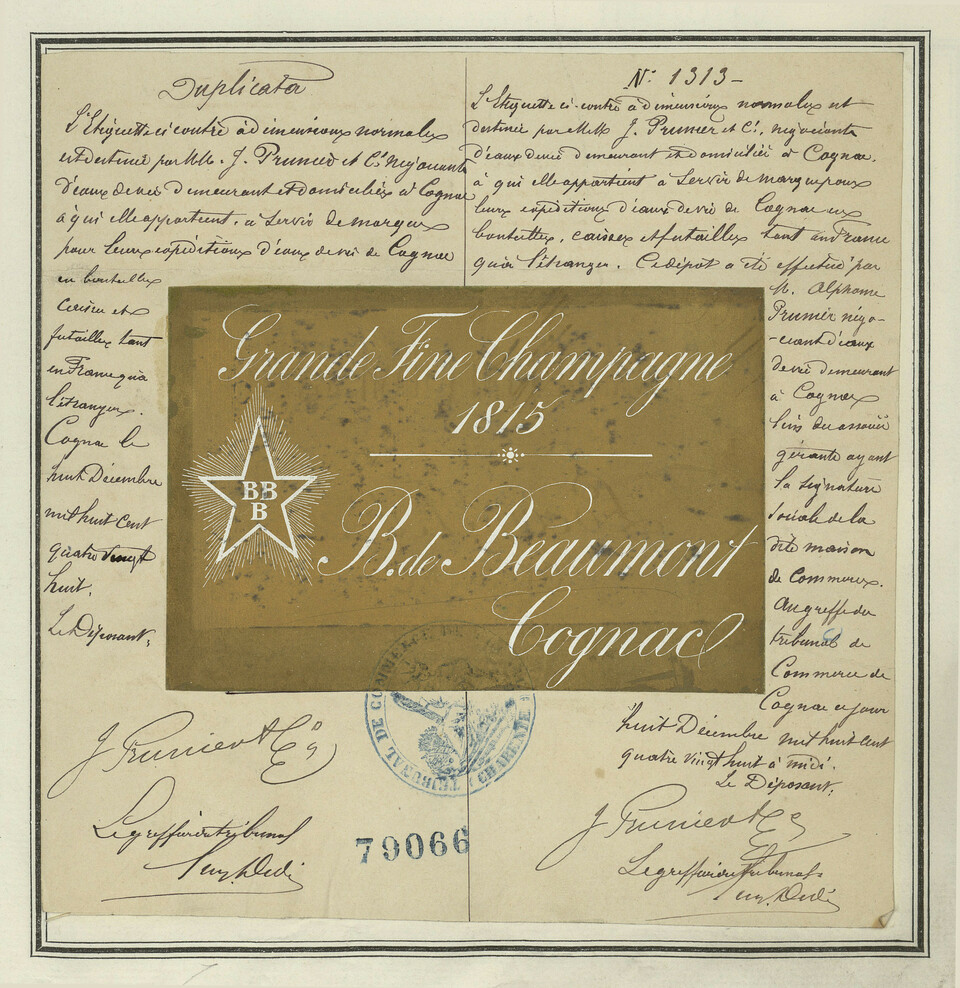 Duplicata
L'Etiquette ci-contre à dimensions normales
est destinée par MM. J. Prunier et Cie. négociants
d'eaux de vie demeurant et domiciliés à Cognac
à qui elle appartient, à servir de marque
pour leurs expéditions d'eaux de vie de Cognac
en bouteilles
caisses et
futailles tant
en France qu'à
l'étranger.
Cognac le
huit Décembre
mil huit cent
quatre vingt
huit.
Le Déposant,
J. Prunier et Cie
Le greffier du tribunal
No. 1313-
L'Etiquette ci-contre à dimensions normales est
destinée par MM. J. Prunier et Cie. négociants
d'eaux de vie demeurant et domiciliés à Cognac.
à qui elle appartient à servir de marque pour
leurs expéditions d'eaux de vie de Cognac en
bouteilles, caisses et futailles tant en France
qu'à l'étranger. Ce dépôt a été effectué par
M. Alphonse
Prunier négo-
-ciant d'eaux
de vie demeurant
à Cognac
l'un des associés
gérants ayant
la signature
sociale de la
dite maison
de Commerce.
Au greffe du
tribunal de
Commerce de
Cognac ce jour
huit Décembre mil huit cent
quatre vingt huit à midi.
Le Déposant,
J. Prunier et Cie
Le greffier du tribunal
Grande Fine Champagne
1815
BB
B
B. de Beaumont
Cognac
TRIBUNAL DE COMMERCE DE
CHARENTE
79066